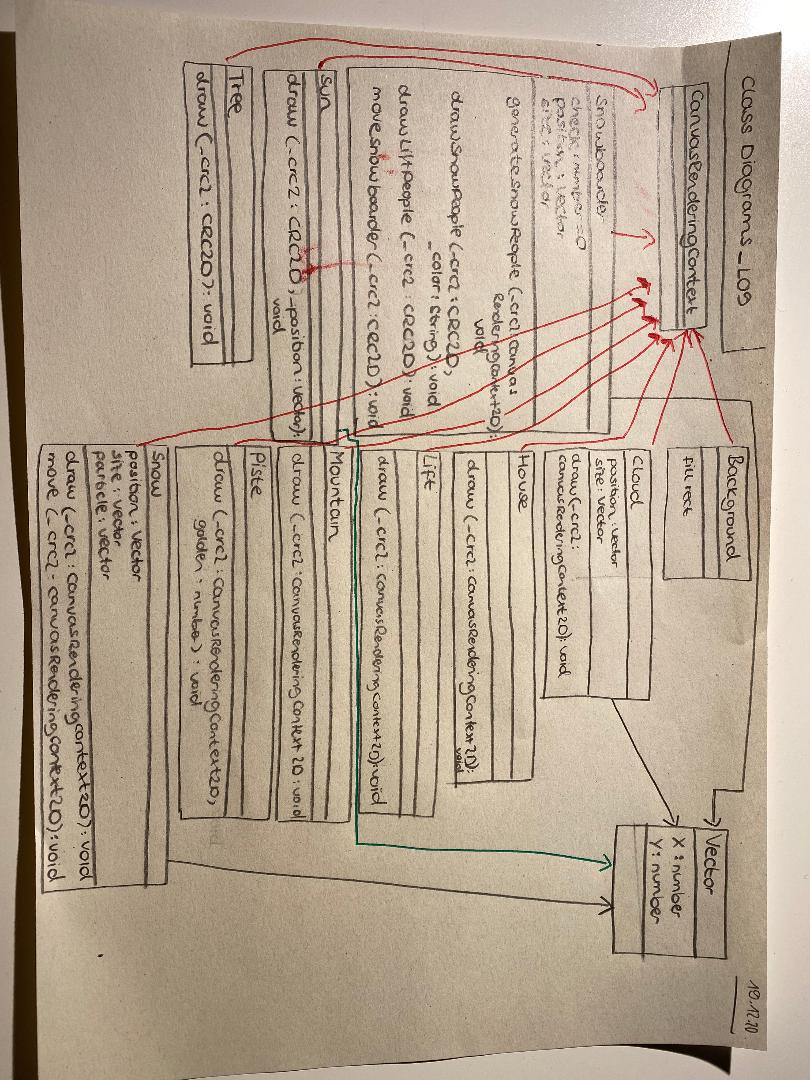 Class Diagrams_L09
19.12.20
CanvasRenderingContext
snowboarder
check: number=0
position: vector
size: vector
generatesnowPeople (_crc2: canvas
RenderingContext2D):
void
drawSnowPeople (_crc2: CRC2D,
_color: string): void
drawLiftPeople (_crc2: CRC2D): void
movesnowboarder (_crc2: CRC2D): void
Sun
draw (_crc2: CRC2D, _position: vector):
void
Tree
draw (_crc2: CRC2D): void
Background
fill rect
Cloud
position: vector
size: vector
draw (_crc2:
canvasRenderingContext2D): void
House
draw (_crc2: canvasRenderingContext2D):
void
Lift
draw (_crc2: canvasRenderingContext2D): void
Mountain
draw (_crc2: canvasRenderingContext 2D: void
Piste
draw (_crc2: canvasRenderingContext2D,
golden: number): void
Snow
position: Vector
size: vector
particle: vector
draw (_crc2: canvasRenderingcontext2D): void
move (_crc2: canvasRenderingcontext2D): void
Vector
X: number
Y: number